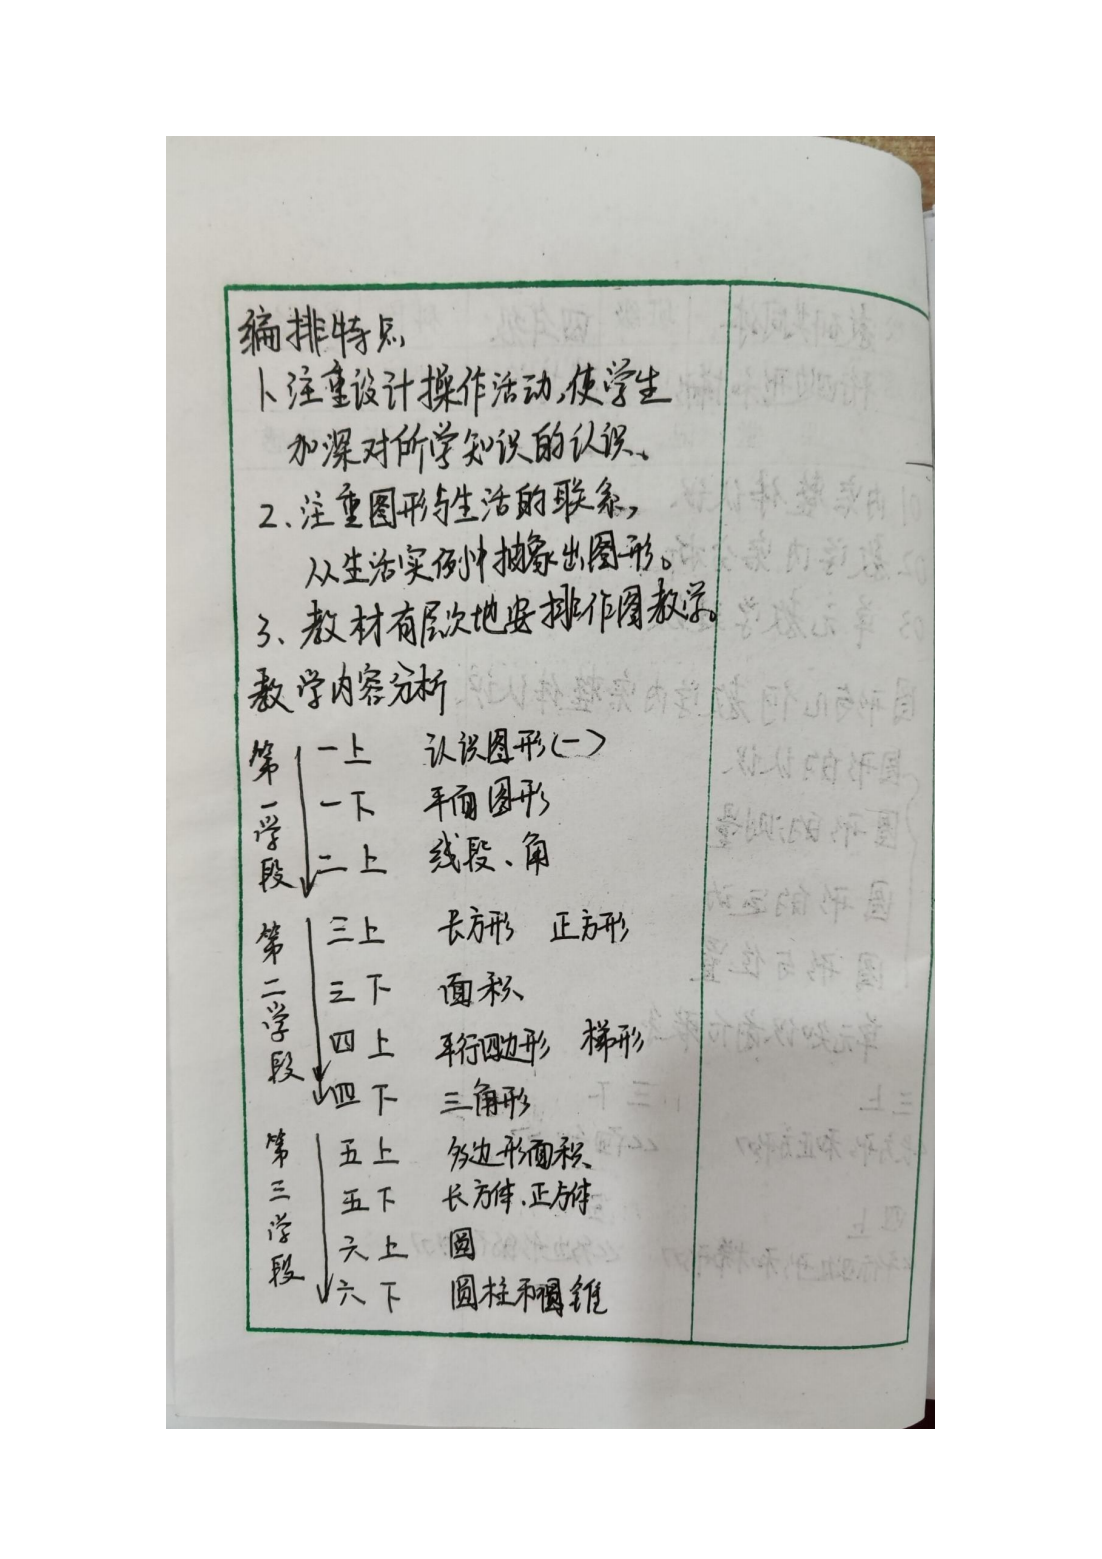 编排特点
1、注重设计操作活动,使学生
加深对所学知识的认识、
2、注重图形与生活的联系,
从生活实例中抽象出图形。
3、教材有层次地安排作图教学。
教学内容分析
第一学段
一上 认识图形(一)
一下 平面图形
二上 线段、角
第二学段
三上 长方形 正方形
三下 面积
四上 平行四边形 梯形
四下 三角形
第三学段
五上 多边形面积
五下 长方体、正方体
六上 圆
六下 圆柱和圆锥